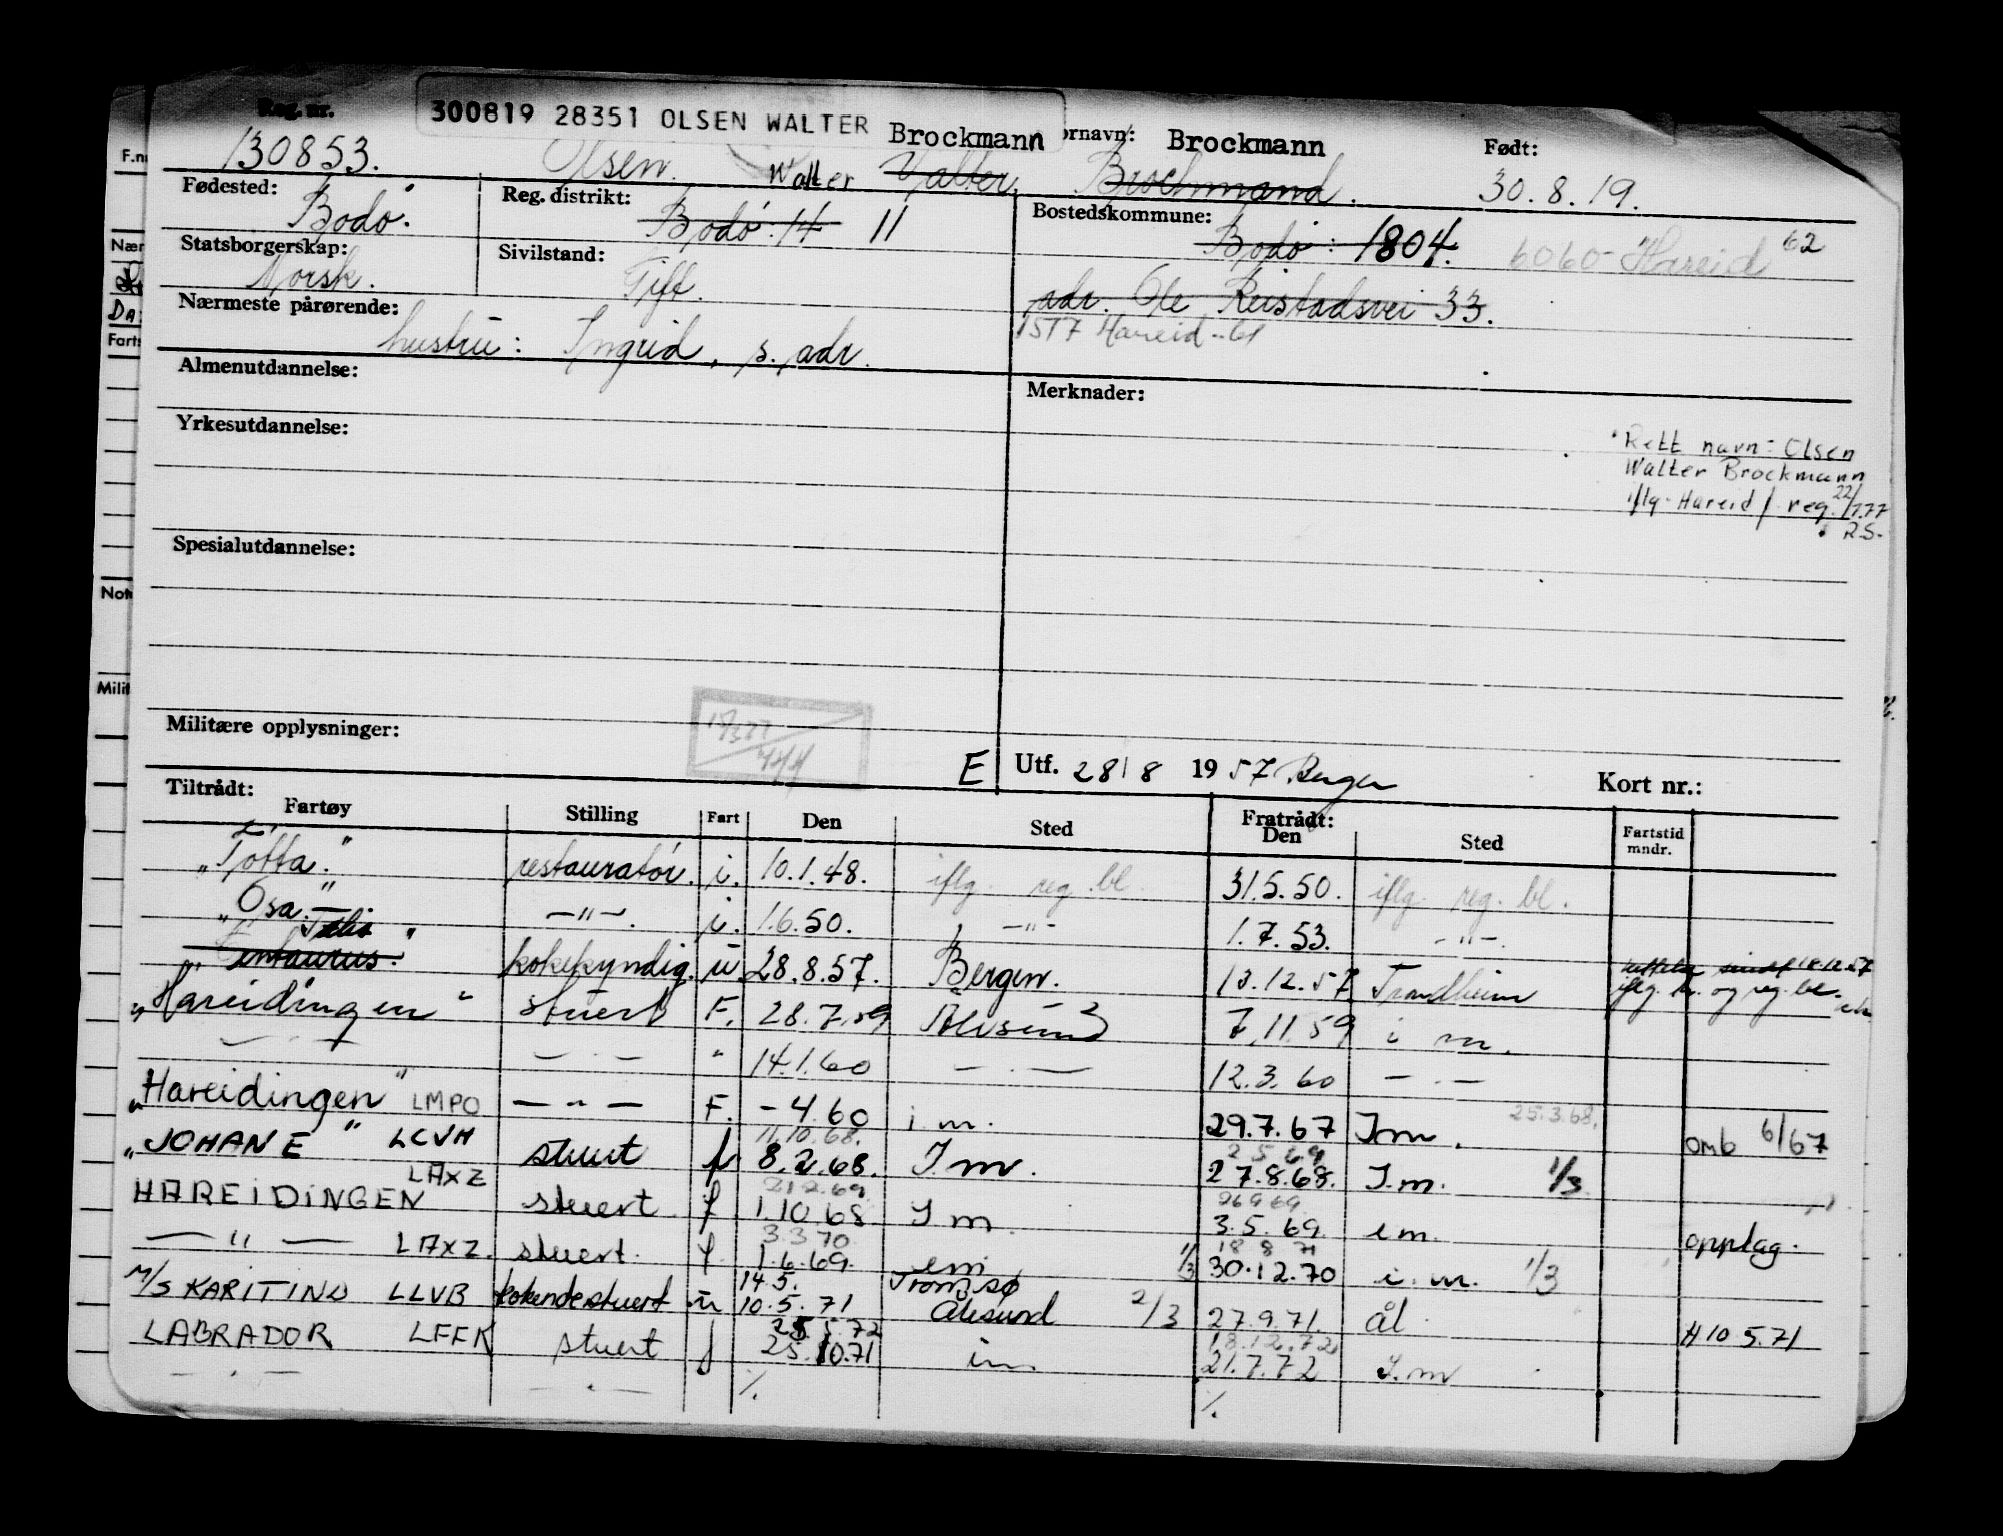 Reg. nr.
300819 28351 OLSEN WALTER Brockmann ornavn: Brockmann Født:
130853. Olsen. Walter Valter. Brochmand. 30.8.19.
Fødested: Bodø. Reg. distrikt: Bodø: 14 11 Bostedskommune: Bodø: 1804. 6060-Hareid 62
Statsborgerskap: Norsk. Sivilstand: Gift. adr. Ole Reistadsvei 33.
1517 Hareid -61
Nærmeste pårørende: hustru: Ingrid, s. adr.
Almenutdannelse: Merknader:
Yrkesutdannelse:
Rett navn: Olsen
Walter Brockmann
iflg. Hareid f. reg. 22/1.77
R.S.
Spesialutdannelse:
Militære opplysninger:
E Utf. 28/8 1957 Bergen Kort nr.:
Tiltrådt: Fratrådt:
Fartøy Stilling Fart Den Sted Den Sted Fartstid mndr.
"Tøtta." restauratør. i. 10.1.48. iflg. reg. bl. 31.5.50. iflg. reg. bl.
"Osa." —"—. i. 1.6.50. —"— 1.7.53. —"—.
kokekyndig. u 28.8.57. Bergen. 13.12.57 Trondheim iflg. og reg. bl.
"Hareidingen" stuert F. 28.7.59 Ålesund 7.11.59 i m.
— " — — . — " 14.1.60 — . — 12.3.60 — . —
"Hareidingen" LMPO — " — F. - 4.60 i m. 29.7.67 I m. 25.3.68. omb 6/67
11.10.68. 2 5 69
"JOHAN E" LCVH stuert f 8.2.68. I m. 27.8.68. I.m. 1/3
LAXZ 21 2.69. 26 9 69
HAREIDINGEN stuert f 1.10.68 I m. 3.5.69. i m. opplag.
3.3.70 18 8 71
— " — LAXZ. stuert. f 1.6.69. im 1/3 30.12.70 i. m. 1/3
14.5. Tromsø
M/S KARITIND LLVB kokendestuert u 10.5.71 Ålesund 2/3 27.9.71. ål H 10.5.71
25.5.72 18.12.72
LABRADOR LFFK stuert f 25.10.71 im 21.7.72 I.m
— " — — " — ⁒ ⁒